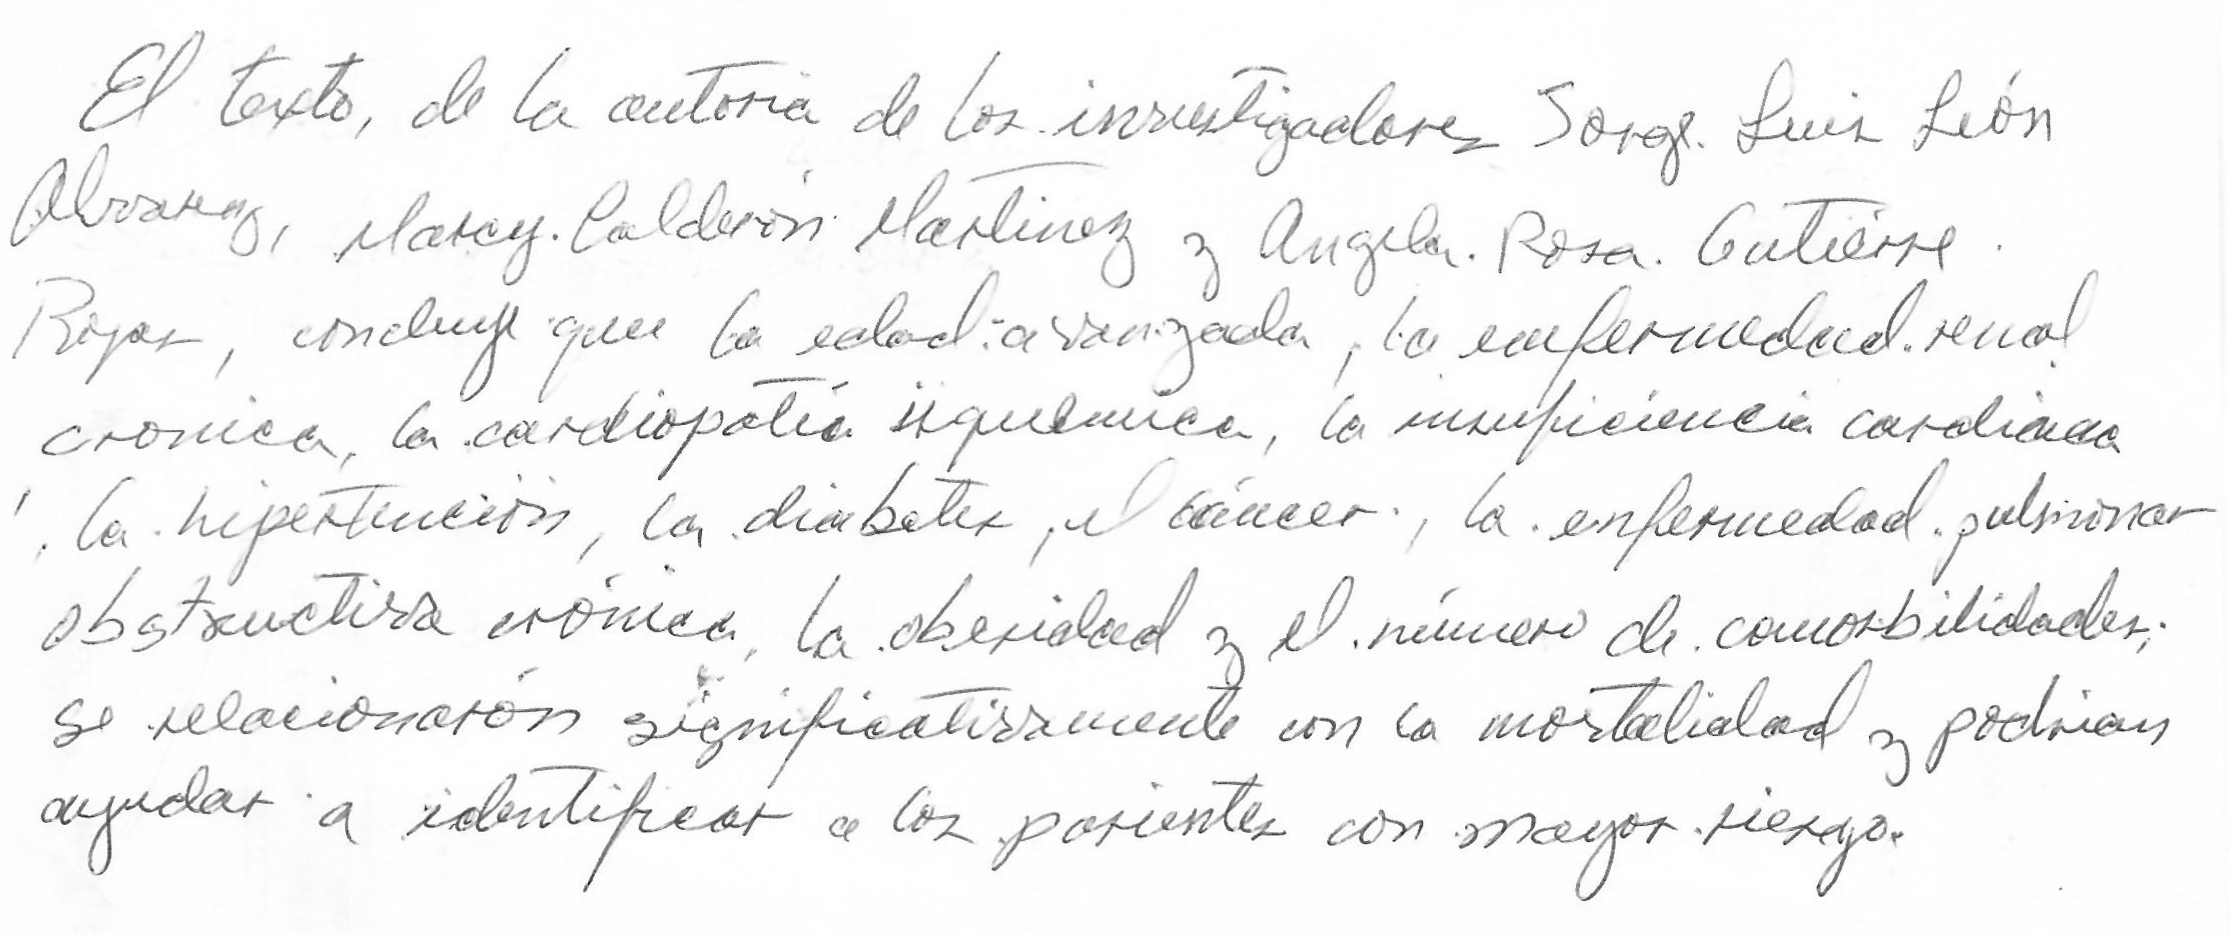 El texto, de la autoria de los investigadores Jorge Luis León
Alvarez, Marcy Calderón Martinez y Angela Rosa Gutiérre
Rojas, concluye que la edad avanzada, la enfermedad renal
cronica, la cardiopatía isquémica, la insuficiencia cardiaca
, la hipertención, la diabetes, el cáncer, la enfermedad pulmonar
obstructiva crónica, la obesidad y el número de comorbilidades;
se relacionarón significativamente con la mortalidad y podrian
ayudar a identificar a los pacientes con mayor riesgo.